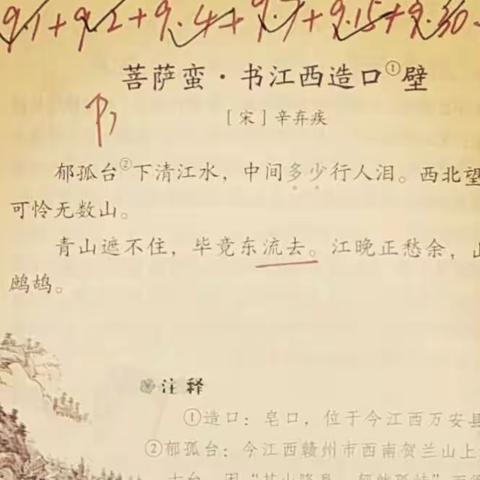 9.1+9.2+9.4+9.7+9.15+9.30
菩萨蛮·书江西造口①壁
[宋]辛弃疾
郁孤台②下清江水，中间多少行人泪。西北望
可怜无数山。
青山遮不住，毕竟东流去。江晚正愁余，山
鹧鸪。
注释
①造口：皂口，位于今江西万安县
②郁孤台：今江西赣州市西南贺兰山上